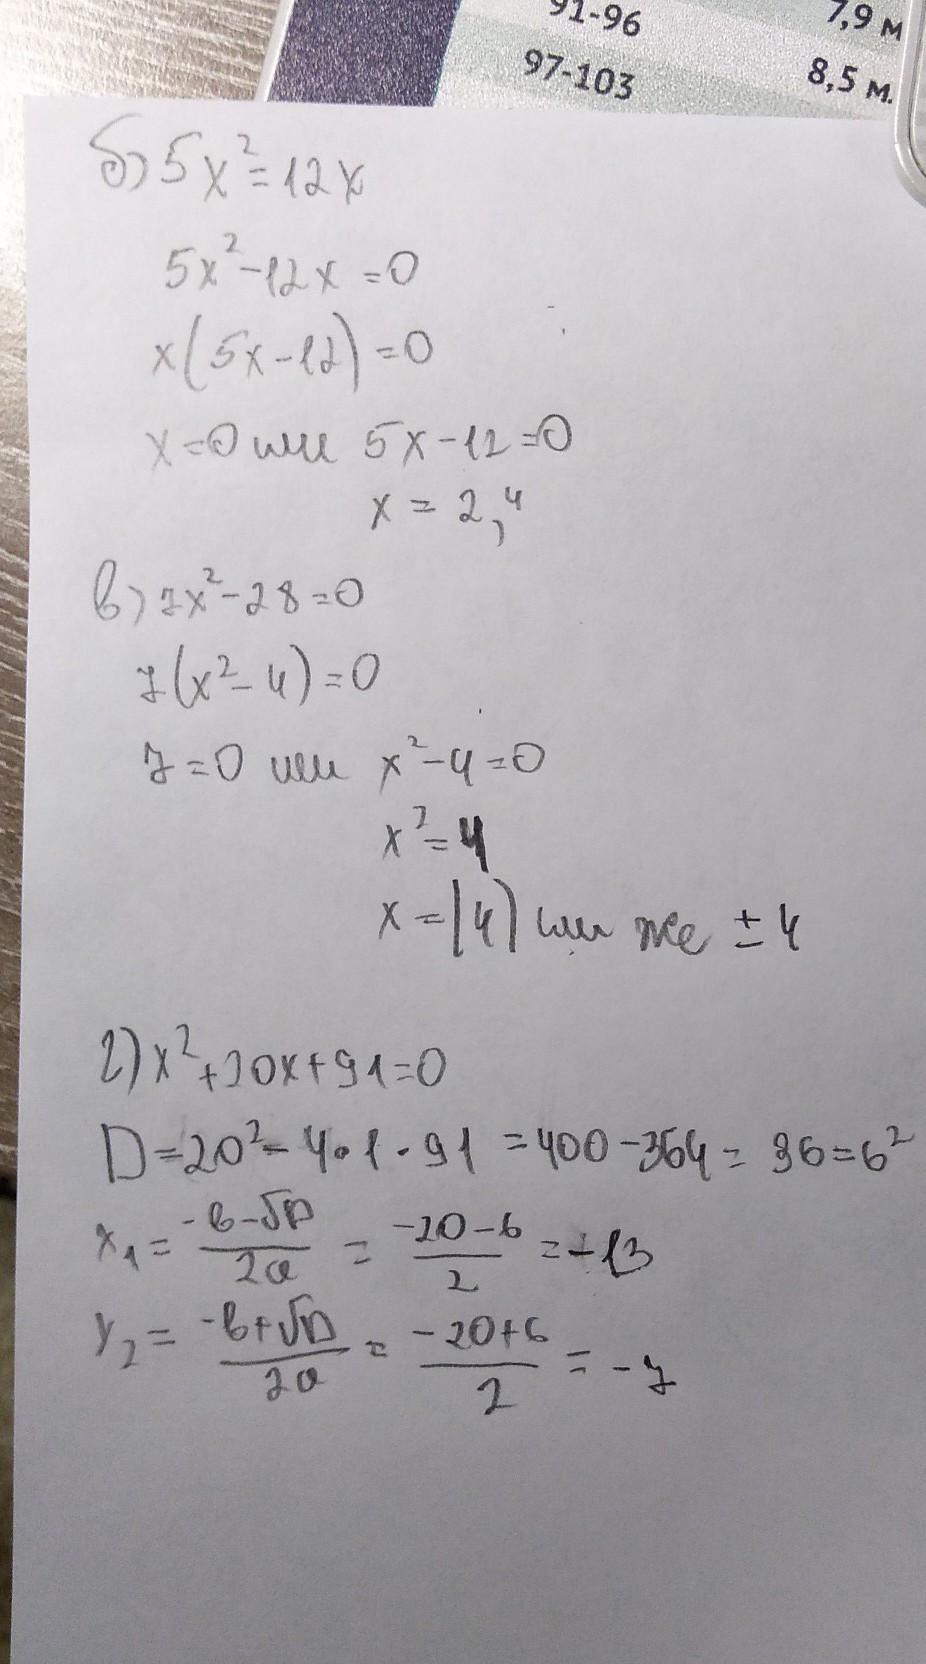 91-96 7,9 м
97-103 8,5 м.
б) 5x²=12x
5x²-12x=0
x(5x-12)=0
x=0 или 5x-12=0
x = 2,4
в) 7x²-28=0
7(x²-4)=0
7=0 или x²-4=0
x²=4
x=|4| или же ±4
г) x²+20x+91=0
D=20²-4•1•91=400-364=36=6²
x₁ = (-b-√D)/2a = (-20-6)/2 = -13
x₂ = (-b+√D)/2a = (-20+6)/2 = -7